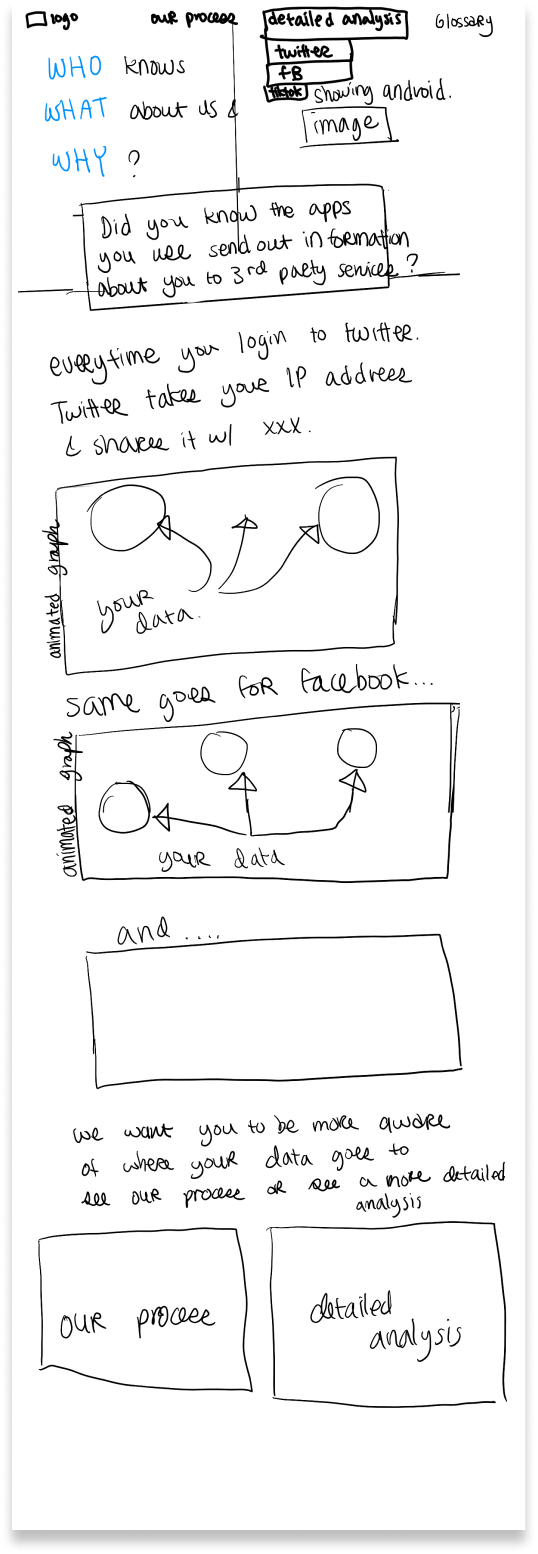 logo
our process
detailed analysis
Glossary
twitter
FB
tiktok
WHO knows
WHAT about us &
WHY ?
showing android.
image
Did you know the apps
you use send out information
about you to 3rd party services?
everytime you login to twitter.
Twitter takes your IP address
& shares it w/ xxx.
animated graph
your
data.
same goes for facebook...
animated graph
your data
and ....
we want you to be more aware
of where your data goes to
see our process or see a more detailed
analysis
our process
detailed
analysis